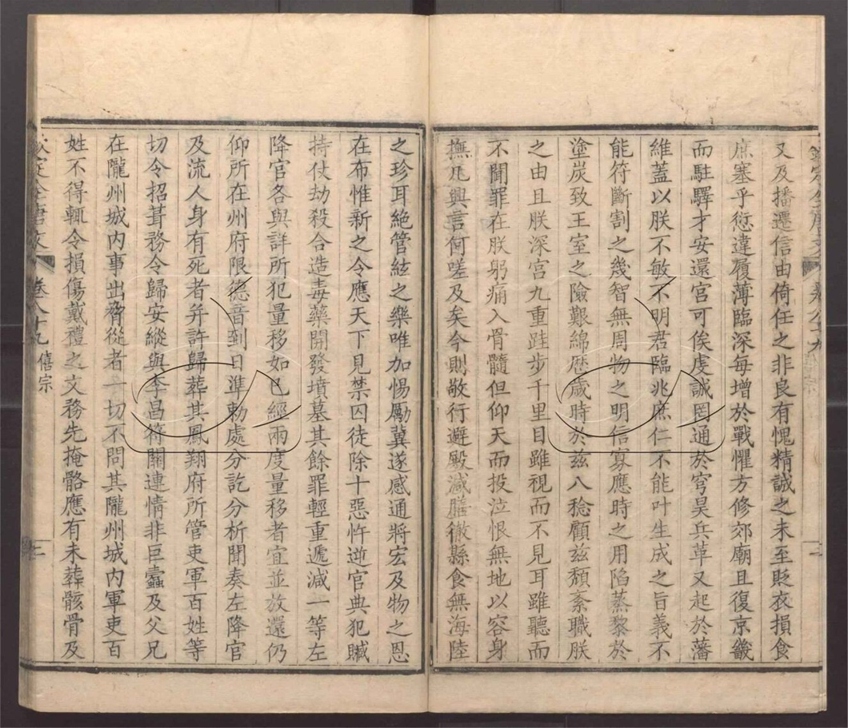 又及播遷信由倚任之非良有愧精誠之未至貶衣損食
庶塞乎愆違履薄臨深每增於戰懼方修郊廟且復京畿
而駐驛才安還宮可俟虔誠罔通於穹昊兵革又起於藩
維蓋以朕不敏不明君臨兆庶仁不能叶生成之旨義不
能符斷割之幾智無周物之明信寡應時之用陷蒸黎於
塗炭致王室之險艱綿歷歲時於茲八稔顧茲頹紊職朕
之由且朕深宮九重跬步千里目雖視而不見耳雖聽而
不聞罪在朕躬痛入骨髓但仰天而投泣恨無地以容身
撫几興言何嗟及矣今則敬行避殿減膳徹縣食無海陸
之珍耳絕管絃之樂唯加惕勵冀遂感通將宏及物之恩
在布惟新之令應天下見禁囚徒除十惡忤逆官典犯贓
持仗劫殺合造毒藥開發墳墓其餘罪輕重遞減一等左
降官各與詳所犯量移如已經兩度量移者宜並放還仍
仰所在州府限德音到日準勅處分訖分析聞奏左降官
及流人身有死者并許歸葬其鳳翔府所管吏軍百姓等
切令招葺務令歸安縱與李昌符關連情非巨蠹及父兄
在隴州城內事出脅從者一切不問其隴州城內軍吏百
姓不得輒令損傷戴禮之文務先掩骼應有未葬骸骨及
欽定全唐文 卷八十九 僖宗 十二